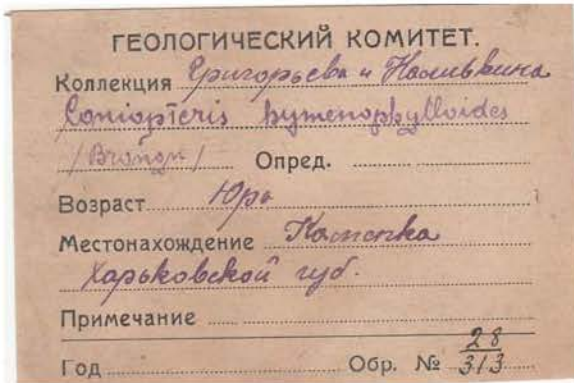 ГЕОЛОГИЧЕСКИЙ КОМИТЕТ.
Коллекция Григорьева и Наливкина
Coniopteris hymenophylloides
/Brongn/ Опред.
Возраст Юра
Местонахождение Каменка
Харьковской губ.
Примечание
Год Обр. № 28/313